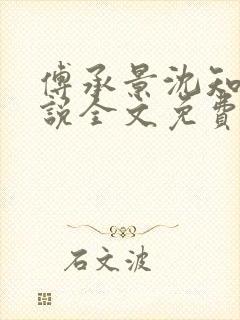 傅承景沈知
說全文免費
石文波